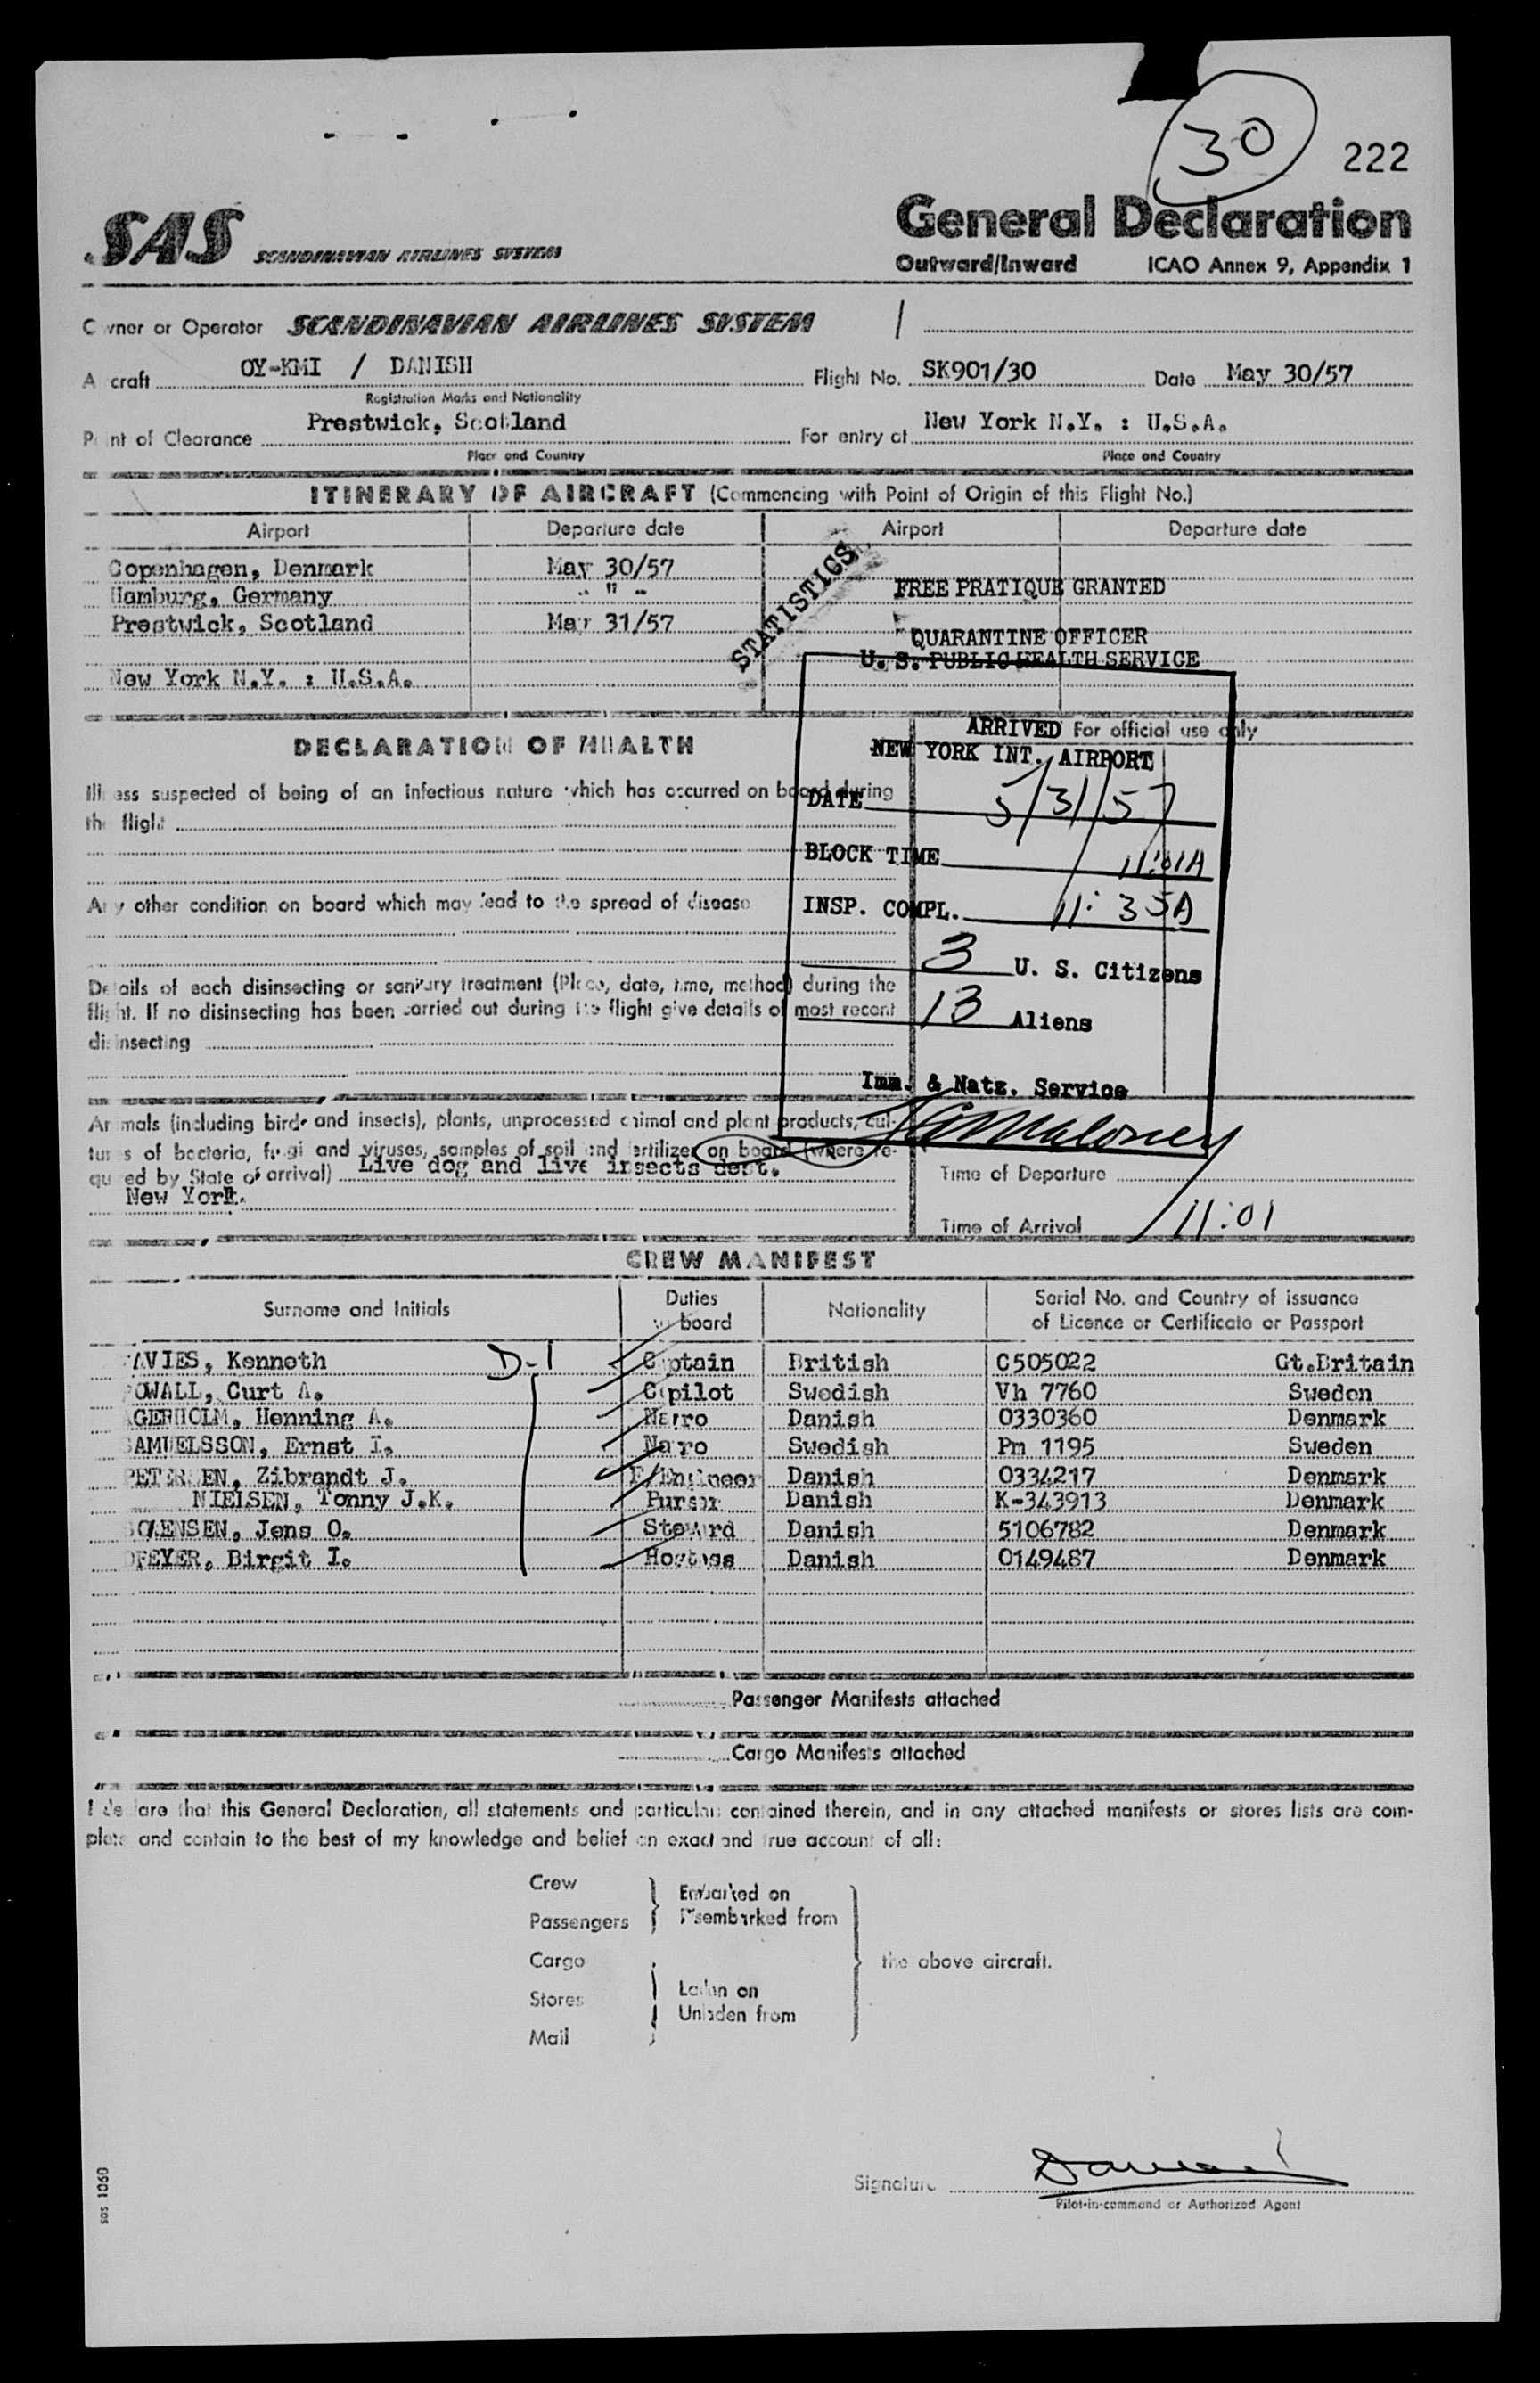 30
222
SAS SCANDINAVIAN AIRLINES SYSTEM
General Declaration
Outward/Inward ICAO Annex 9, Appendix 1
Owner or Operator SCANDINAVIAN AIRLINES SYSTEM
Aircraft OY-KMI / DANISH Flight No. SK901/30 Date May 30/57
Registration Marks and Nationality
Point of Clearance Prestwick, Scotland For entry at New York N.Y. : U.S.A.
Place and Country Place and Country
ITINERARY OF AIRCRAFT (Commencing with Point of Origin of this Flight No.)
Airport Departure date Airport Departure date
Copenhagen, Denmark May 30/57
Hamburg, Germany - " -
Prestwick, Scotland May 31/57
New York N.Y. : U.S.A.
STATISTICS
FREE PRATIQUE GRANTED
QUARANTINE OFFICER
U. S. PUBLIC HEALTH SERVICE
DECLARATION OF HEALTH
For official use only
ARRIVED
NEW YORK INT. AIRPORT
DATE 5/31/57
BLOCK TIME 11:01A
INSP. COMPL. 11:35A
3 U. S. Citizens
13 Aliens
Imm. & Natz. Service
Maloney
Illness suspected of being of an infectious nature which has occurred on board during
the flight
Any other condition on board which may lead to the spread of disease
Details of each disinsecting or sanitary treatment (Place, date, time, method) during the
flight. If no disinsecting has been carried out during the flight give details of most recent
disinsecting
Animals (including birds and insects), plants, unprocessed animal and plant products, cul-
tures of bacteria, fungi and viruses, samples of soil and fertilizer on board (where re-
quired by State of arrival) Live dog and live insects dest.
New York.
Time of Departure
Time of Arrival 11:01
CREW MANIFEST
Surname and Initials Duties on board Nationality Serial No. and Country of issuance
of Licence or Certificate or Passport
AVIES, Kenneth D-1 Captain British C505022 Gt.Britain
OWALL, Curt A. Copilot Swedish Vh 7760 Sweden
AGERHOLM, Henning A. Navro Danish 0330360 Denmark
SAMUELSSON, Ernst I. Navro Swedish Pm 1195 Sweden
PETERSEN, Zibrandt J. F/Engineer Danish 0334217 Denmark
NIELSEN, Tonny J.K. Purser Danish K-343913 Denmark
SORENSEN, Jens O. Steward Danish 5106782 Denmark
DREYER, Birgit I. Hostess Danish 0149487 Denmark
Passenger Manifests attached
Cargo Manifests attached
I declare that this General Declaration, all statements and particulars contained therein, and in any attached manifests or stores lists are com-
plete and contain to the best of my knowledge and belief an exact and true account of all:
Crew
Passengers
Embarked on
Disembarked from
Cargo
Stores
Mail
Laden on
Unladen from
the above aircraft.
Signature
Pilot-in-command or Authorized Agent
sas 1060